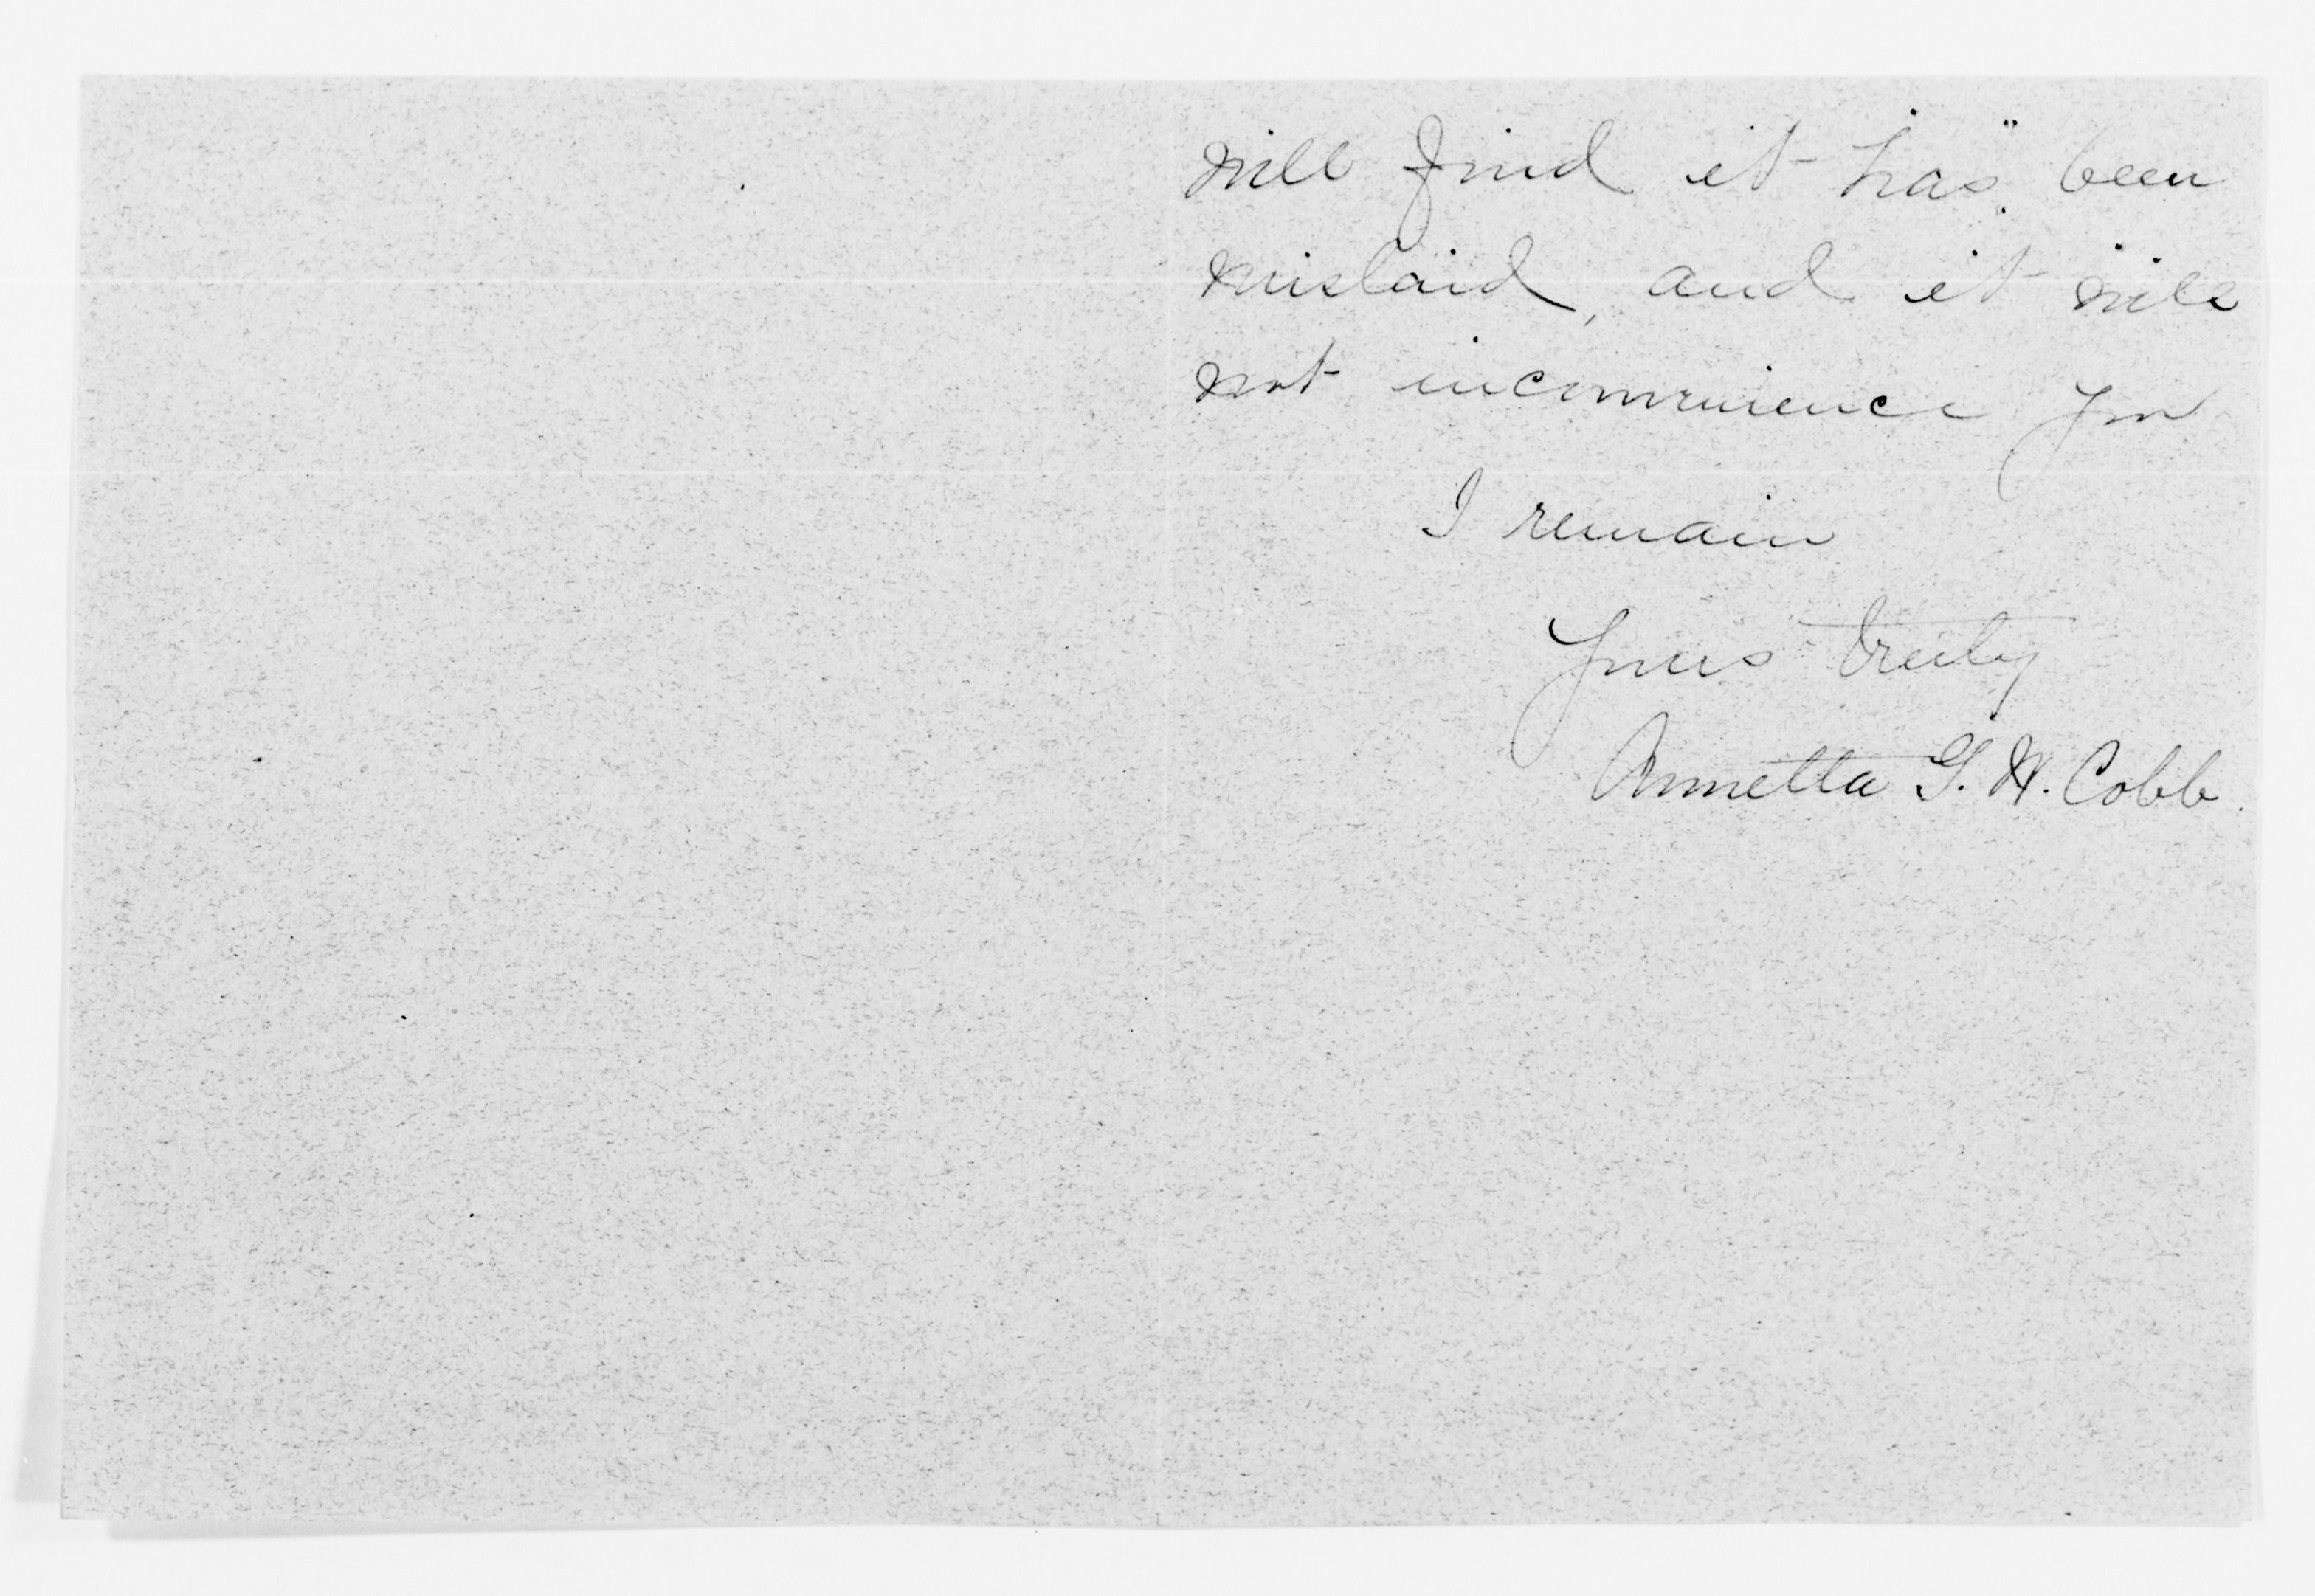 will find it has been
mislaid, and it will
not inconvenience you
I remain
Yours truly
Annetta G. W. Cobb.